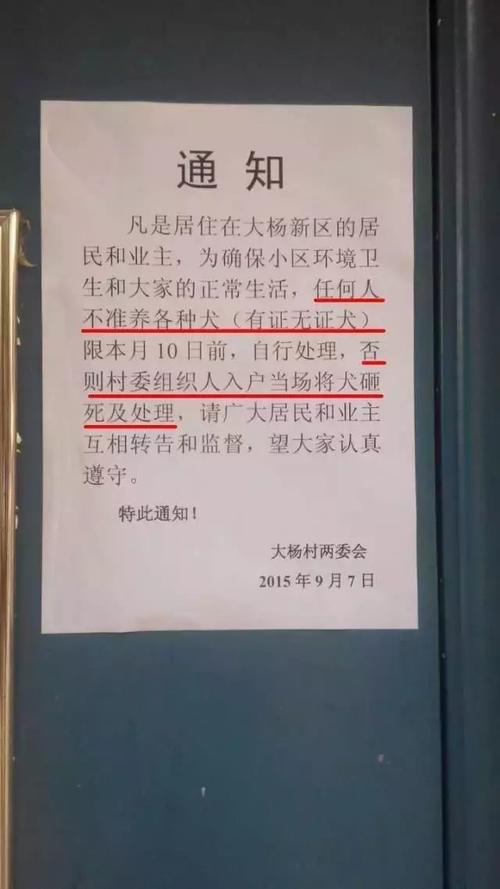 通知
凡是居住在大杨新区的居
民和业主，为确保小区环境卫
生和大家的正常生活，任何人
不准养各种犬（有证无证犬）
限本月10日前，自行处理，否
则村委组织人入户当场将犬砸
死及处理，请广大居民和业主
互相转告和监督，望大家认真
遵守。
特此通知！
大杨村两委会
2015年9月7日